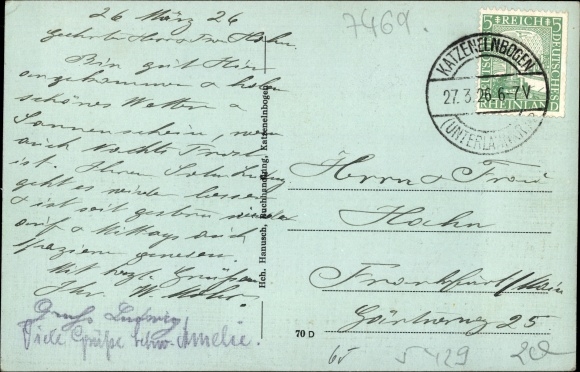 26 März 26
7469.
Geehrte Herr u Frau Hahn.
Bin gut hier
angekommen u habe
schönes Wetter u
Sonnenschein, wenn
auch Nachts Frost
ist. Ihrem
geht es wieder besser
u ist seit gestern wieder
auf u Mittags auch
spazieren gewesen.
Mit herzl. Grüßen
Ihr W.
Gruß Ludwig
Viele Grüße Amelie.
Hch. Hanusch, Buchhandlung, Katzenelnbogen
5 REICH 5
DEUTSCHES
RHEINLAND
KATZENELNBOGEN
27.3.26.6-7V.
(UNTERLAHNKR.)
Herrn u Frau
Hahn
Frankfurt/Main
Gärtnerweg 25
70 D
65
5429